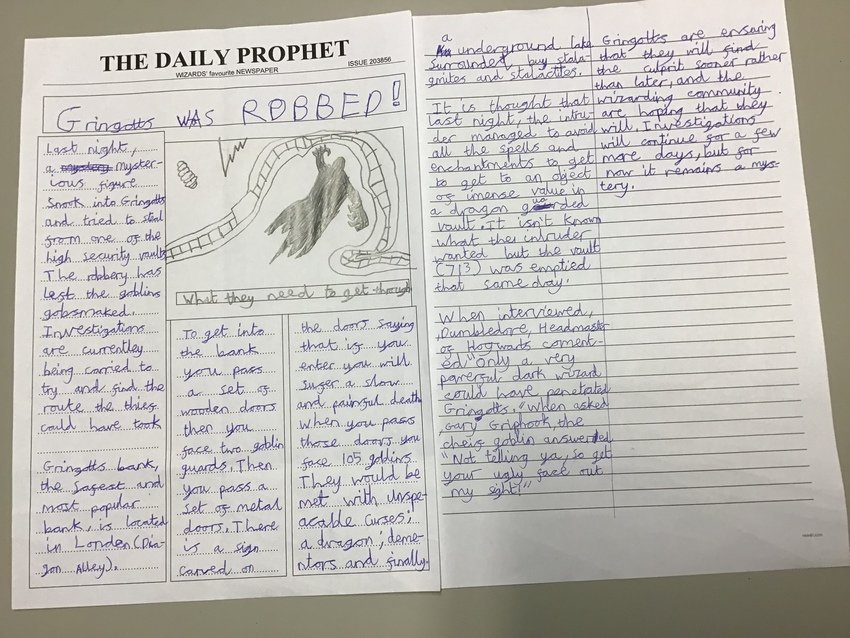 THE DAILY PROPHET
WIZARDS' favourite NEWSPAPER
ISSUE 203856
Gringotts WAS ROBBED!
Last night,
a myster-
ious figure
Snook into Gringotts
and tried to steal
from one of the
high security vaults
The robbery has
left the goblins
gobsmaked.
Investigations
are currentley
being carried to
try and find the
route the thief
could have took
Gringotts bank,
the safest and
most popular
bank, is located
in London (Dia-
gon Alley).
What they need to get through
To get into
the bank
you pass
a set of
wooden doors
then you
face two goblin
guards. Then
you pass a
set of metal
doors. There
is a sign
carved on
the doors saying
that is you
enter you will
sufer a slow
and painful death
When you pass
those doors you
face 105 goblins
They would be
met with unspe-
acable curses;
a dragon; deme-
ntors and finally.
a
underground lake
surrounded buy stala-
gmites and stalactites.
It is thought that
last night, the intru-
der managed to avoid
all the spells and
enchantments to get
to get to an object
of imense value in
a dragon guarded
vault. It isn't known
what ther intruder
wanted but the vault
(713) was emptied
that same day.
When interviewed,
Dumbledore, Headmaster
of Hogwarts coment-
ed "Only a very
powerful dark wizard
could have penetrated
Gringotts." When asked
Gary Griphook, the
cheif goblin answered
"Not telling ya, so get
your ugly face out
my sight!"
Gringotts are ensuring
that they will find
the culprit sooner rather
than later, and the
wizarding community
are hoping that they
will. Investigations
will continue for a few
more days, but for
now it remains a mys-
tery.